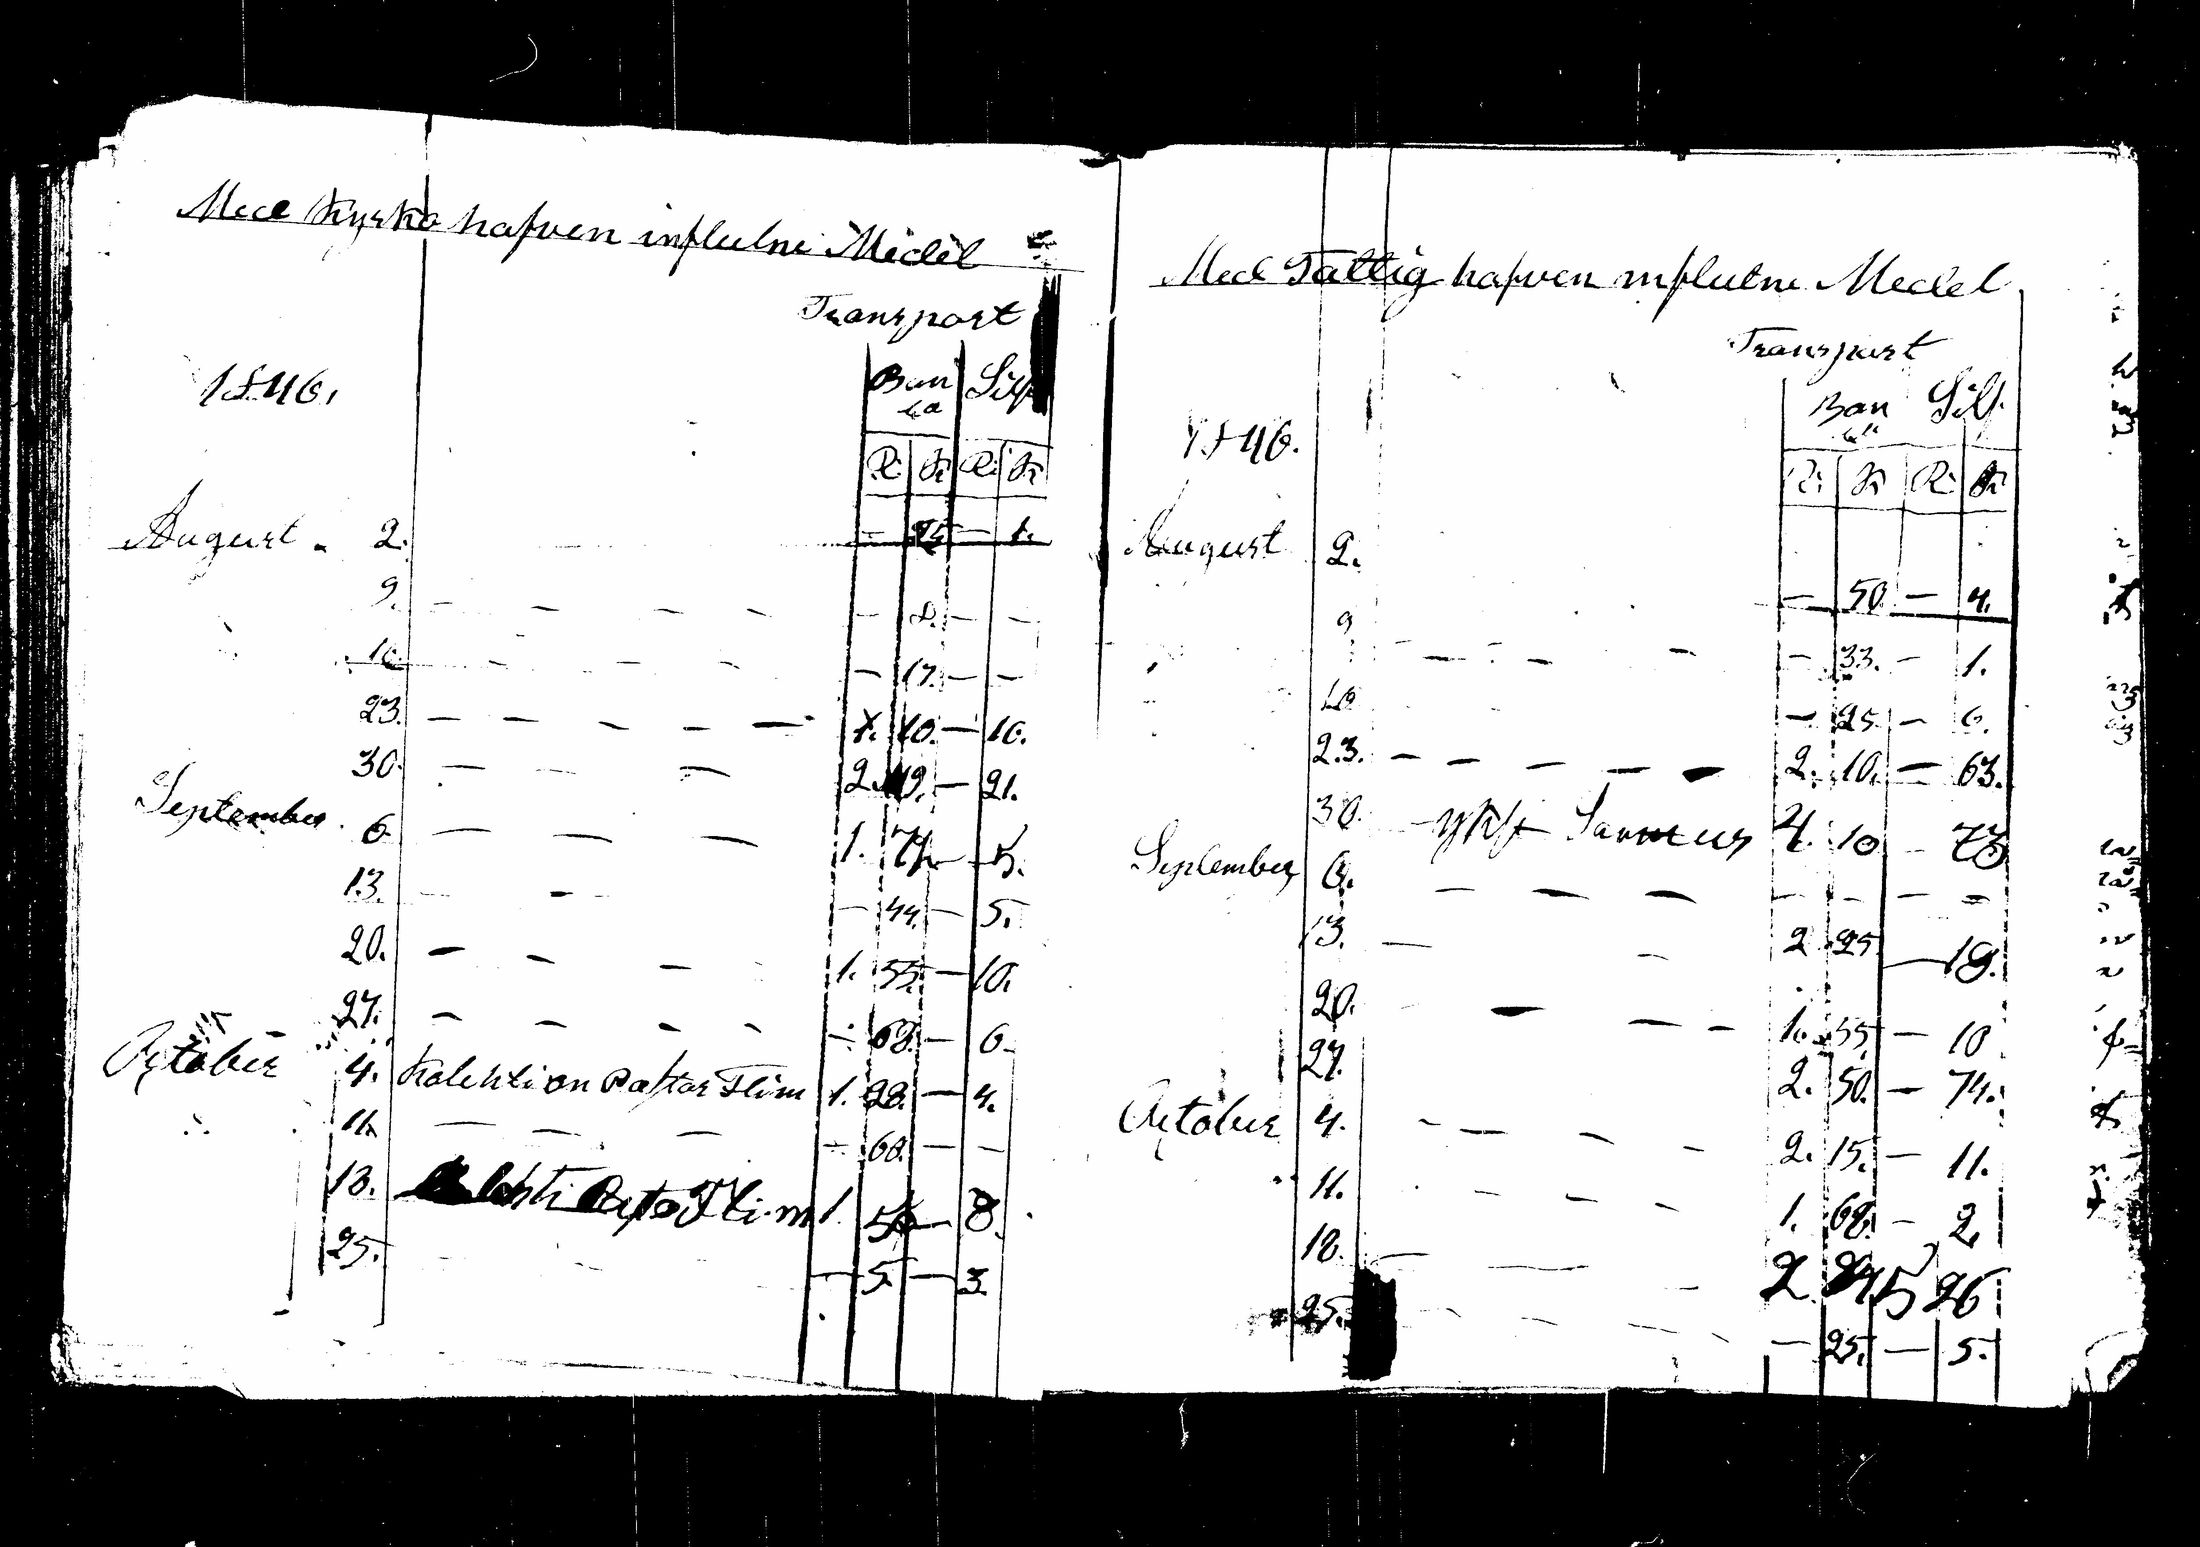 Med Kyrko hafven influtne Medel
Transport
1846.
Banka Silf
R. K R. K
August 2. — 25 — 1.
9. — — — — — 8. — —
16. — — — — — 17. — —
23. — — — — — 1. 10. — 16.
30. — — — 2. 19. — 21.
September 6. — — — — 1. 74 — 5.
13. — — — 44. — 5.
20. — — — — 1. 55. — 10.
27. — — — — — 68. — 6
October 4. Kolehti on Pastor Flim 1. 28. — 4.
11. — — — — 68. — —
18. 1. 56 — 8.
25. — 5 — 3
Med Fattig hafven influtne Medel
Transport
1846.
Banka Silf
R. K R. K
August 2.
— 50 — 4.
9 — — — — — 33. — 1.
16 — 25 — 6.
23. — — — — — 2. 10. — 63.
30. — yksi 4. 10 — 73
September 6. — — — — — — —
13. — — 2 25 — 19.
20. — — — 1. 55 — 10
27. 2. 50. — 74.
October 4. — — — — 2. 15. — 11.
11. — — — 1. 68. — 2
18. — — — 2 26
25. — — — — 25. — 5.